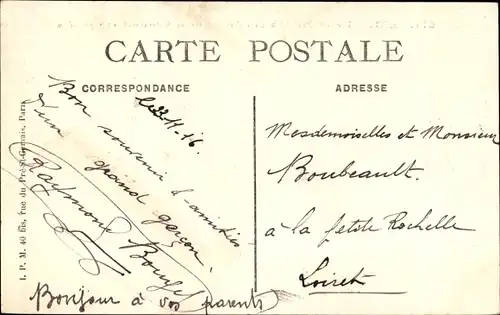 CARTE POSTALE
CORRESPONDANCE
ADRESSE
I. P. M. 40 bis, rue du Pré-St-Gervais, Paris
le 23-11-16.
Bon souvenir d'amitiés
d'un grand garçon.
Raymond
Bonjour à vos parents
Mesdemoiselles et Monsieur
Boubeault.
à la petite Rochelle
Loiret